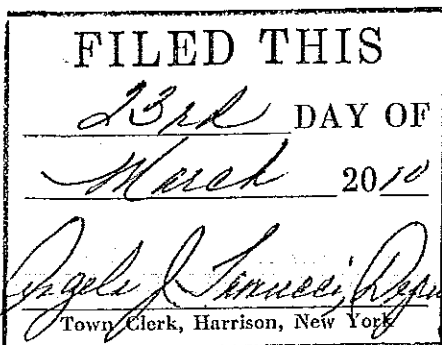 FILED THIS
23rd DAY OF
March 2010
Angela J.
Town Clerk, Harrison, New York